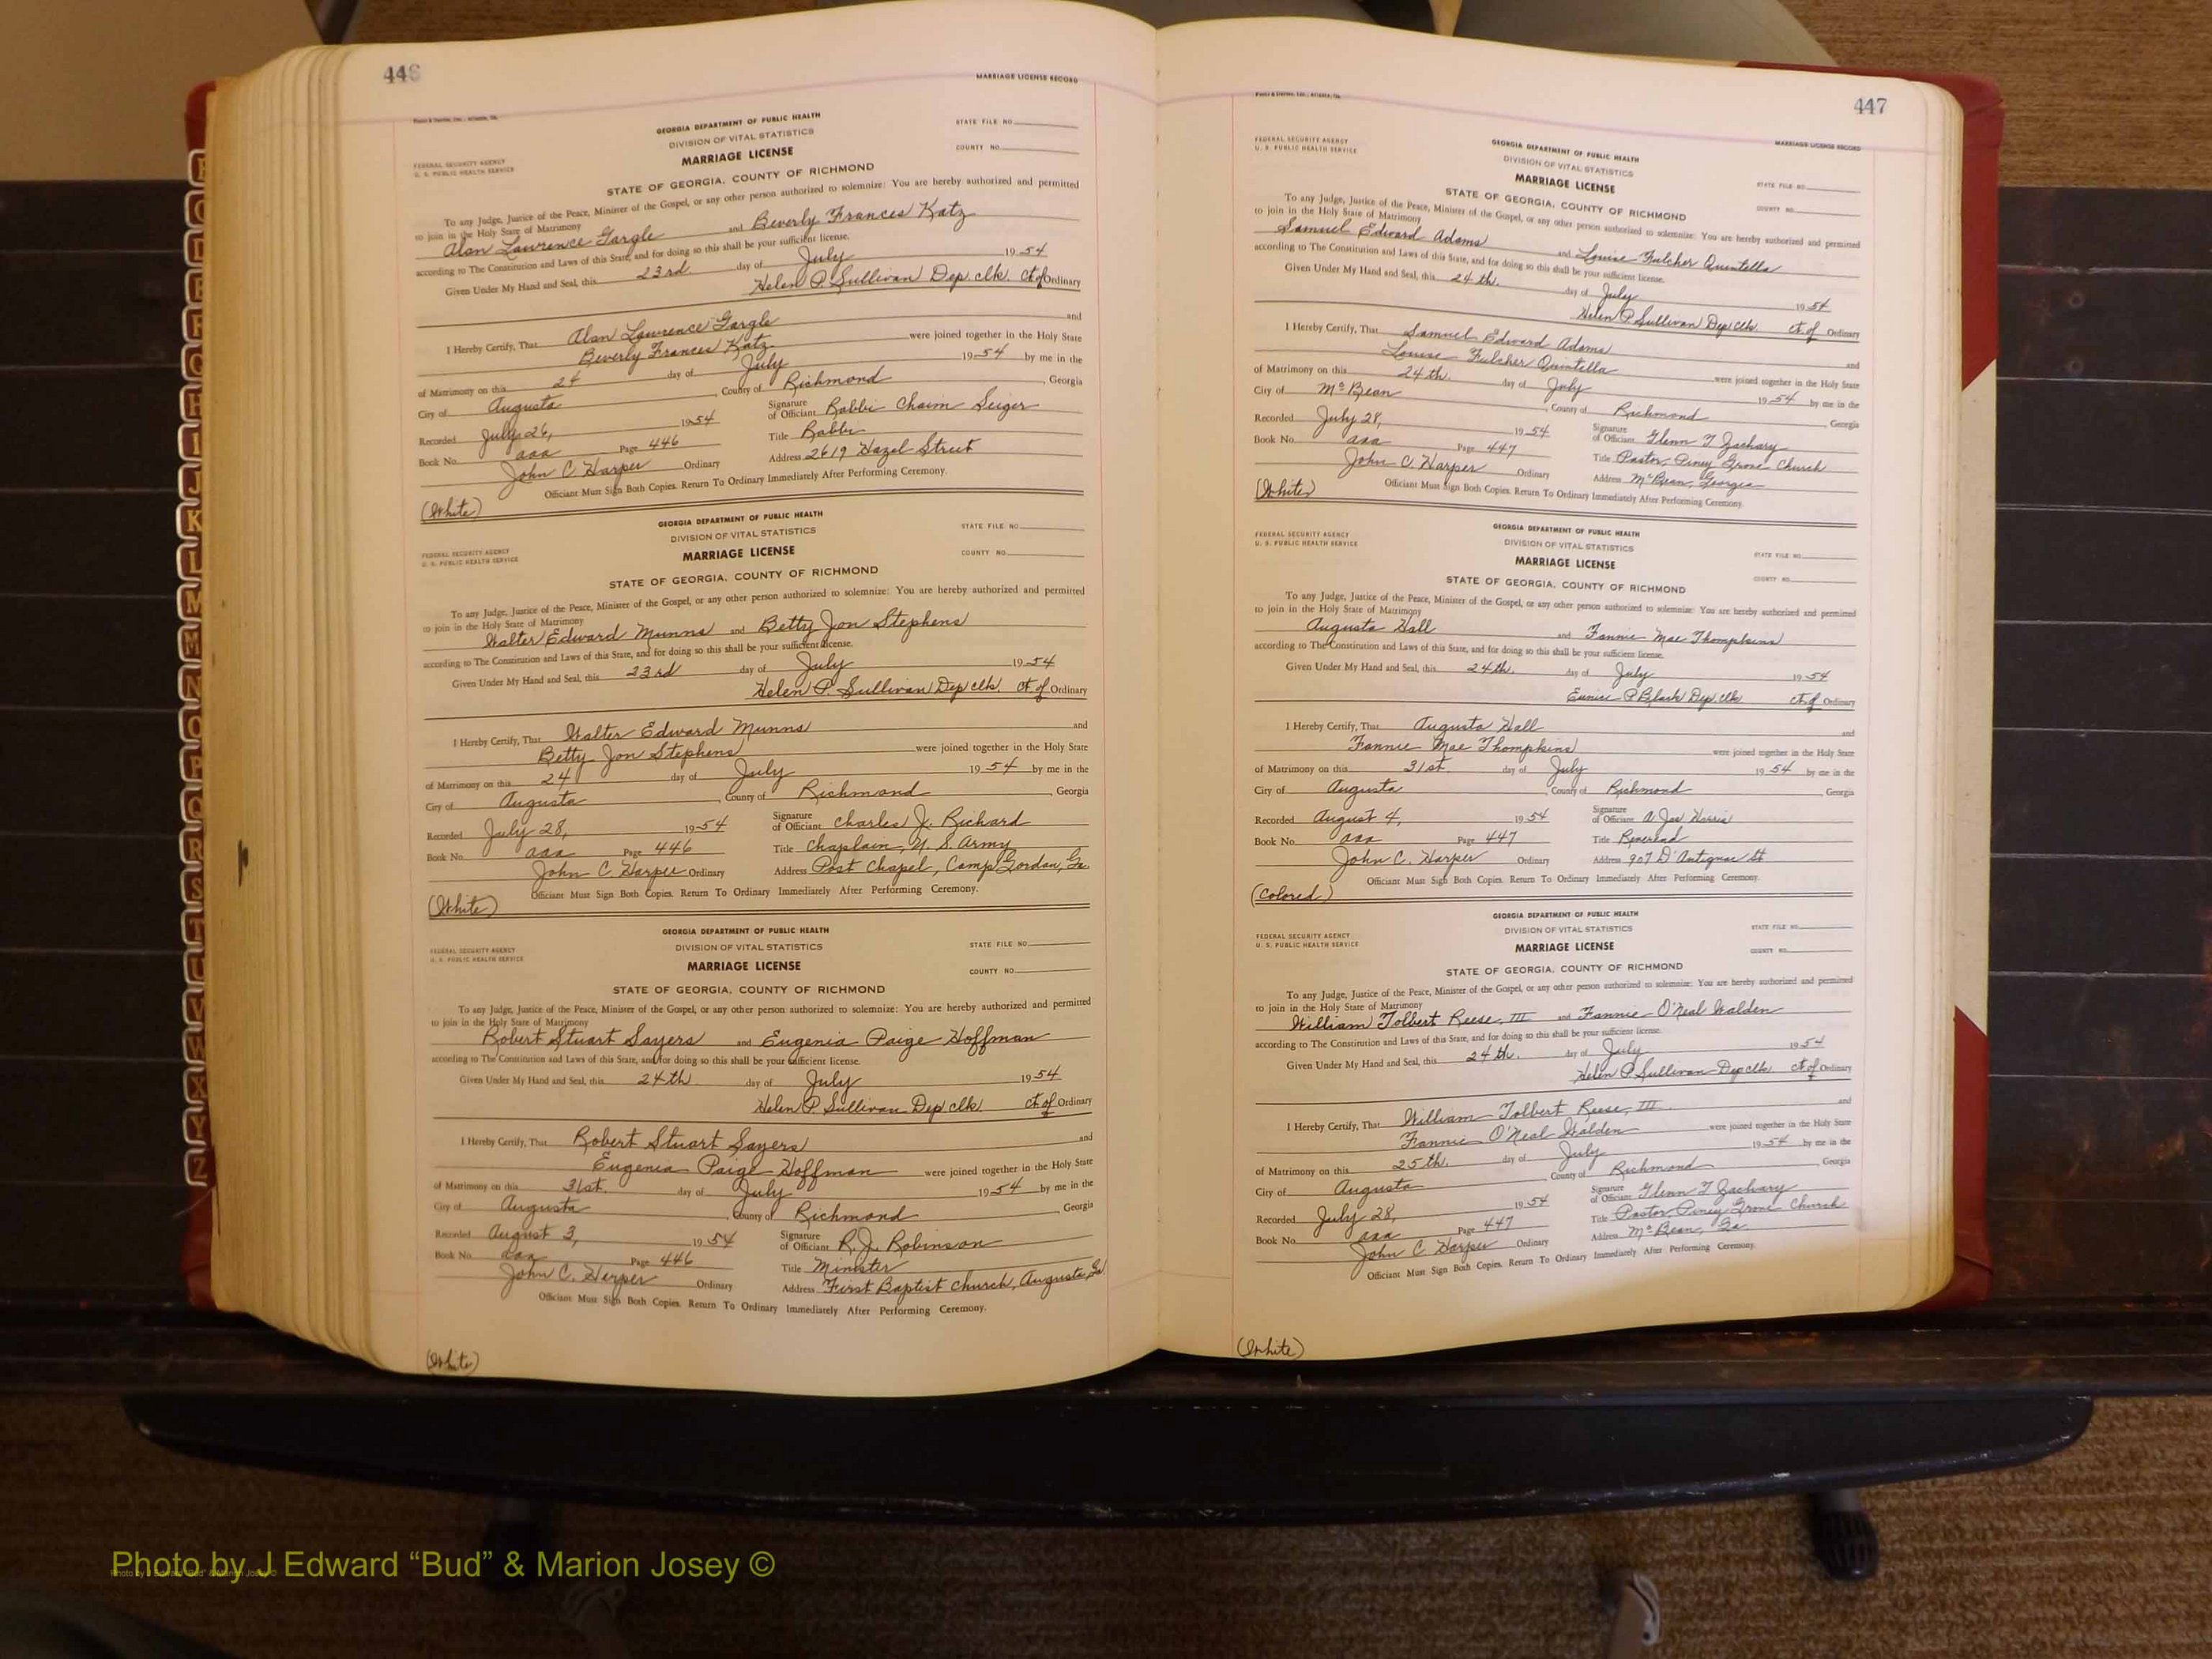 446
MARRIAGE LICENSE RECORD
GEORGIA DEPARTMENT OF PUBLIC HEALTH
DIVISION OF VITAL STATISTICS
MARRIAGE LICENSE
STATE FILE NO.
COUNTY NO.
FEDERAL SECURITY AGENCY
U. S. PUBLIC HEALTH SERVICE
STATE OF GEORGIA, COUNTY OF RICHMOND
To any Judge, Justice of the Peace, Minister of the Gospel, or any other person authorized to solemnize: You are hereby authorized and permitted
to join in the Holy State of Matrimony
Alan Lawrence Gargle and Beverly Frances Katz
according to The Constitution and Laws of this State, and for doing so this shall be your sufficient license.
Given Under My Hand and Seal, this 23rd day of July 1954
Helen P. Sullivan Dep. clk. Ct of Ordinary
I Hereby Certify, That Alan Lawrence Gargle and
Beverly Frances Katz were joined together in the Holy State
of Matrimony on this 24 day of July 1954 by me in the
City of Augusta, County of Richmond, Georgia
Recorded July 26, 1954 Signature of Officiant Rabbi Chaim Seiger
Book No. aaa Page 446 Title Rabbi
John C. Harper Ordinary Address 2619 Hazel Street
Officiant Must Sign Both Copies. Return To Ordinary Immediately After Performing Ceremony.
(White)
GEORGIA DEPARTMENT OF PUBLIC HEALTH
DIVISION OF VITAL STATISTICS
MARRIAGE LICENSE
STATE FILE NO.
COUNTY NO.
FEDERAL SECURITY AGENCY
U. S. PUBLIC HEALTH SERVICE
STATE OF GEORGIA, COUNTY OF RICHMOND
To any Judge, Justice of the Peace, Minister of the Gospel, or any other person authorized to solemnize: You are hereby authorized and permitted
to join in the Holy State of Matrimony
Walter Edward Munns and Betty Jon Stephens
according to The Constitution and Laws of this State, and for doing so this shall be your sufficient license.
Given Under My Hand and Seal, this 23rd day of July 1954
Helen P. Sullivan Dep clk. Ct. of Ordinary
I Hereby Certify, That Walter Edward Munns and
Betty Jon Stephens were joined together in the Holy State
of Matrimony on this 24 day of July 1954 by me in the
City of Augusta, County of Richmond, Georgia
Recorded July 28, 1954 Signature of Officiant Charles J. Richard
Book No. aaa Page 446 Title Chaplain, U. S. Army
John C. Harper Ordinary Address Post Chapel, Camp Gordon, Ga.
Officiant Must Sign Both Copies. Return To Ordinary Immediately After Performing Ceremony.
(White)
GEORGIA DEPARTMENT OF PUBLIC HEALTH
DIVISION OF VITAL STATISTICS
MARRIAGE LICENSE
STATE FILE NO.
COUNTY NO.
FEDERAL SECURITY AGENCY
U. S. PUBLIC HEALTH SERVICE
STATE OF GEORGIA, COUNTY OF RICHMOND
To any Judge, Justice of the Peace, Minister of the Gospel, or any other person authorized to solemnize: You are hereby authorized and permitted
to join in the Holy State of Matrimony
Robert Stuart Sayers and Eugenia Paige Hoffman
according to The Constitution and Laws of this State, and for doing so this shall be your sufficient license.
Given Under My Hand and Seal, this 24th day of July 1954
Helen P. Sullivan Dep clk. Ct. of Ordinary
I Hereby Certify, That Robert Stuart Sayers and
Eugenia Paige Hoffman were joined together in the Holy State
of Matrimony on this 31st. day of July 1954 by me in the
City of Augusta, County of Richmond, Georgia
Recorded August 3, 1954 Signature of Officiant R. J. Robinson
Book No. aaa Page 446 Title Minister
John C. Harper Ordinary Address First Baptist Church, Augusta, Ga
Officiant Must Sign Both Copies. Return To Ordinary Immediately After Performing Ceremony.
(White)
447
MARRIAGE LICENSE RECORD
FEDERAL SECURITY AGENCY
U. S. PUBLIC HEALTH SERVICE
GEORGIA DEPARTMENT OF PUBLIC HEALTH
DIVISION OF VITAL STATISTICS
MARRIAGE LICENSE
STATE FILE NO.
COUNTY NO.
STATE OF GEORGIA, COUNTY OF RICHMOND
To any Judge, Justice of the Peace, Minister of the Gospel, or any other person authorized to solemnize: You are hereby authorized and permitted
to join in the Holy State of Matrimony
Samuel Edward Adams and Louise Fulcher Quintella
according to The Constitution and Laws of this State, and for doing so this shall be your sufficient license.
Given Under My Hand and Seal, this 24th. day of July 1954
Helen P. Sullivan Dep clk. Ct. of Ordinary
I Hereby Certify, That Samuel Edward Adams and
Louise Fulcher Quintella were joined together in the Holy State
of Matrimony on this 24th. day of July 1954 by me in the
City of McBean, County of Richmond, Georgia
Recorded July 28, 1954 Signature of Officiant Glenn T Zachary
Book No. aaa Page 447 Title Pastor, Piney Grove Church
John C. Harper Ordinary Address McBean, Georgia
Officiant Must Sign Both Copies. Return To Ordinary Immediately After Performing Ceremony.
(White)
GEORGIA DEPARTMENT OF PUBLIC HEALTH
DIVISION OF VITAL STATISTICS
MARRIAGE LICENSE
FEDERAL SECURITY AGENCY
U. S. PUBLIC HEALTH SERVICE
STATE FILE NO.
COUNTY NO.
STATE OF GEORGIA, COUNTY OF RICHMOND
To any Judge, Justice of the Peace, Minister of the Gospel, or any other person authorized to solemnize: You are hereby authorized and permitted
to join in the Holy State of Matrimony
Augusta Hall and Fannie Mae Thompkins
according to The Constitution and Laws of this State, and for doing so this shall be your sufficient license.
Given Under My Hand and Seal, this 24th. day of July 1954
Eunice P. Black Dep. clk. Ct. of Ordinary
I Hereby Certify, That Augusta Hall and
Fannie Mae Thompkins were joined together in the Holy State
of Matrimony on this 31st. day of July 1954 by me in the
City of Augusta, County of Richmond, Georgia
Recorded August 4, 1954 Signature of Officiant A Jas Harris
Book No. aaa Page 447 Title Reverend
John C. Harper Ordinary Address 907 D'Antignac St
Officiant Must Sign Both Copies. Return To Ordinary Immediately After Performing Ceremony.
(Colored)
GEORGIA DEPARTMENT OF PUBLIC HEALTH
DIVISION OF VITAL STATISTICS
MARRIAGE LICENSE
FEDERAL SECURITY AGENCY
U. S. PUBLIC HEALTH SERVICE
STATE FILE NO.
COUNTY NO.
STATE OF GEORGIA, COUNTY OF RICHMOND
To any Judge, Justice of the Peace, Minister of the Gospel, or any other person authorized to solemnize: You are hereby authorized and permitted
to join in the Holy State of Matrimony
William Tolbert Reese, III and Fannie O'Neal Walden
according to The Constitution and Laws of this State, and for doing so this shall be your sufficient license.
Given Under My Hand and Seal, this 24th. day of July 1954
Helen P. Sullivan Dep clk. Ct of Ordinary
I Hereby Certify, That William Tolbert Reese, III. and
Fannie O'Neal Walden were joined together in the Holy State
of Matrimony on this 25th. day of July 1954 by me in the
City of Augusta, County of Richmond, Georgia
Recorded July 28, 1954 Signature of Officiant Glenn T Zachary
Book No. aaa Page 447 Title Pastor, Piney Grove Church
John C. Harper Ordinary Address McBean, Ga.
Officiant Must Sign Both Copies. Return To Ordinary Immediately After Performing Ceremony.
(White)
Photo by J Edward “Bud” & Marion Josey ©